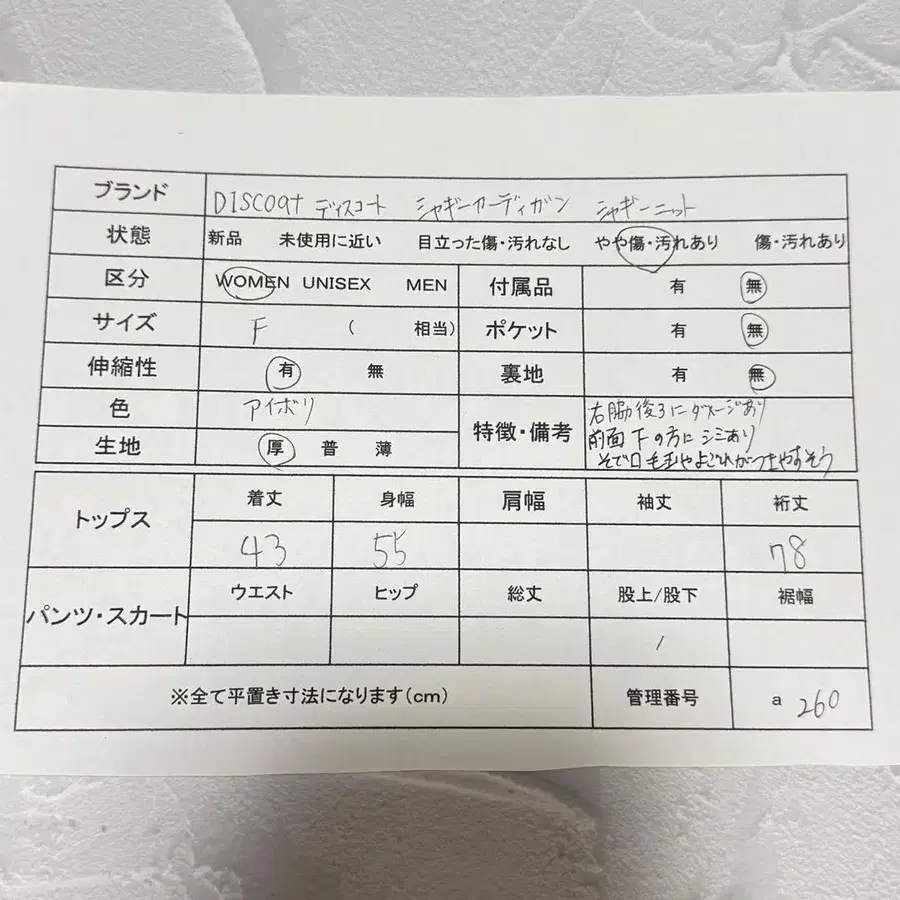 ブランド DISCOat ディスコート シャギーカーディガン シャギーニット
状態 新品 未使用に近い 目立った傷・汚れなし やや傷・汚れあり 傷・汚れあり
区分 WOMEN UNISEX MEN 付属品 有 無
サイズ F ( 相当) ポケット 有 無
伸縮性 有 無 裏地 有 無
色 アイボリ
生地 厚 普 薄
特徴・備考
右脇後ろにダメージあり
前面下の方にシミあり
そで口毛玉やよごれがつきやすそう
トップス 着丈 身幅 肩幅 袖丈 裄丈
43 55 78
パンツ・スカート ウエスト ヒップ 総丈 股上/股下 裾幅
/
※全て平置き寸法になります(cm) 管理番号 a 260